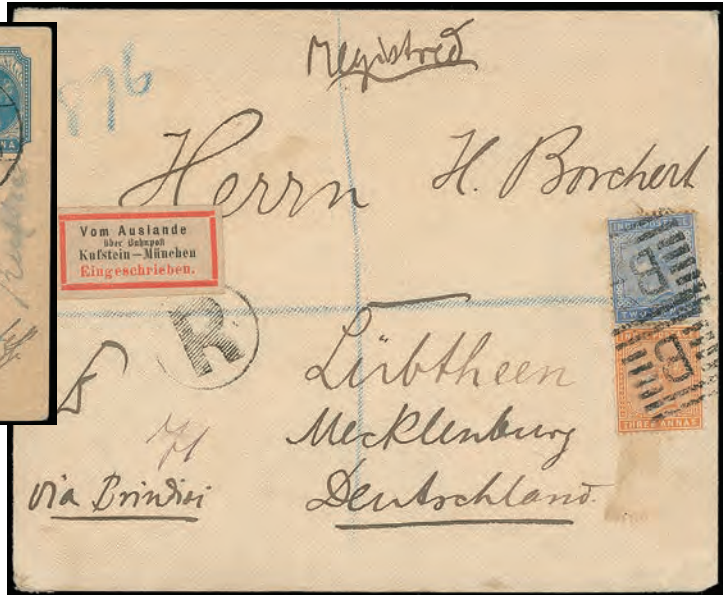 Registred
876
Herrn H. Borchert
Vom Auslande
über Bahnpost
Kufstein—München
Eingeschrieben.
R
Lübtheen
Mecklenburg
Deutschland.
via Brindisi
INDIA POSTAGE
TWO
B
B
THREE ANNAS
NNA